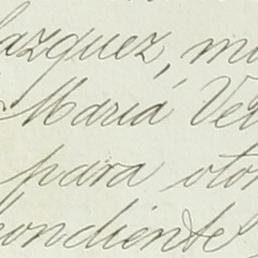 azquez, m
Mariá Ve
para oto
ondiente